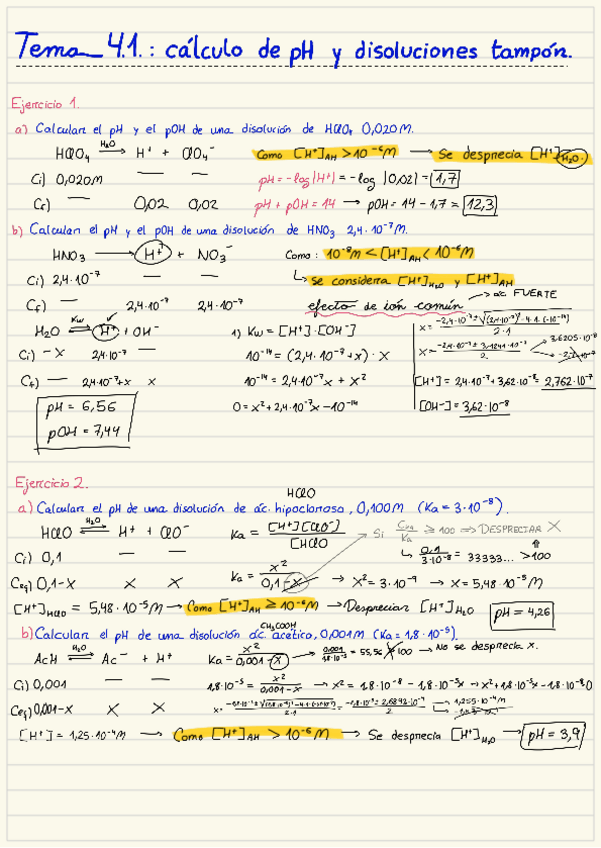 Tema 4.1.: cálculo de pH y disoluciones tampón.
Ejercicio 1.
a) Calcular el pH y el pOH de una disolución de HClO₄ 0,020M.
HClO₄ →(H₂O) H⁺ + ClO₄⁻ Como [H⁺]AH > 10⁻⁶M → Se desprecia [H⁺]H₂O.
Ci) 0,020M — — pH = -log|H⁺| = -log |0,02| = 1,7
Cf) — 0,02 0,02 pH + pOH = 14 → pOH = 14 - 1,7 = 12,3
b) Calcular el pH y el pOH de una disolución de HNO₃ 2,4·10⁻⁷M.
HNO₃ → H⁺ + NO₃⁻ Como: 10⁻⁸M < [H⁺]AH < 10⁻⁶M
Ci) 2,4·10⁻⁷ — — ↳ Se considera [H⁺]H₂O y [H⁺]AH
→ ác FUERTE
Cf) — 2,4·10⁻⁷ 2,4·10⁻⁷ efecto de ión común
H₂O ⇌(Kw) H⁺ + OH⁻ 1) Kw = [H⁺]·[OH⁻]
Ci) - x 2,4·10⁻⁷ — 10⁻¹⁴ = (2,4·10⁻⁷+x)·x
Cf) — 2,4·10⁻⁷+x x 10⁻¹⁴ = 2,4·10⁻⁷x + x²
0 = x² + 2,4·10⁻⁷x - 10⁻¹⁴
3,6205·10⁻⁸
[H⁺] = 2,4·10⁻⁷ + 3,62·10⁻⁸ = 2,762·10⁻⁷
[OH⁻] = 3,62·10⁻⁸
pH = 6,56
pOH = 7,44
Ejercicio 2.
HClO
a) Calcular el pH de una disolución de ác. hipocloroso, 0,100M (Ka = 3·10⁻⁸).
HClO ⇌(H₂O) H⁺ + ClO⁻ Ka = [H⁺][ClO⁻] / [HClO → Si / Ka ≥ 100 ⇒ DESPRECIAR X
Ci) 0,1 — — ↳ 0,1 / 3·10⁻⁸ = 33333... > 100
Ceq) 0,1-x x x Ka = x² / 0,1-x → x² = 3·10⁻⁹ → x = 5,48·10⁻⁵M
[H⁺]HClO = 5,48·10⁻⁵M → Como [H⁺]AH ≥ 10⁻⁶M → Despreciar [H⁺]H₂O pH = 4,26
CH₃COOH
b) Calcular el pH de una disolución ác. acético, 0,001M (Ka = 1,8·10⁻⁵).
AcH ⇌(H₂O) Ac⁻ + H⁺ Ka = x² / 0,001-x → 0,001 / 1,8·10⁻⁵ = 55,56 ≯ 100 → No se desprecia x.
Ci) 0,001 — — 1,8·10⁻⁵ = x² / 0,001-x → x² = 1,8·10⁻⁸ - 1,8·10⁻⁵x → x² + 1,8·10⁻⁵x - 1,8·10⁻⁸
Ceq) 0,001-x x x 1,255·10⁻⁴M
[H⁺] = 1,25·10⁻⁴M → Como [H⁺]AH > 10⁻⁶M → Se desprecia [H⁺]H₂O → pH = 3,9